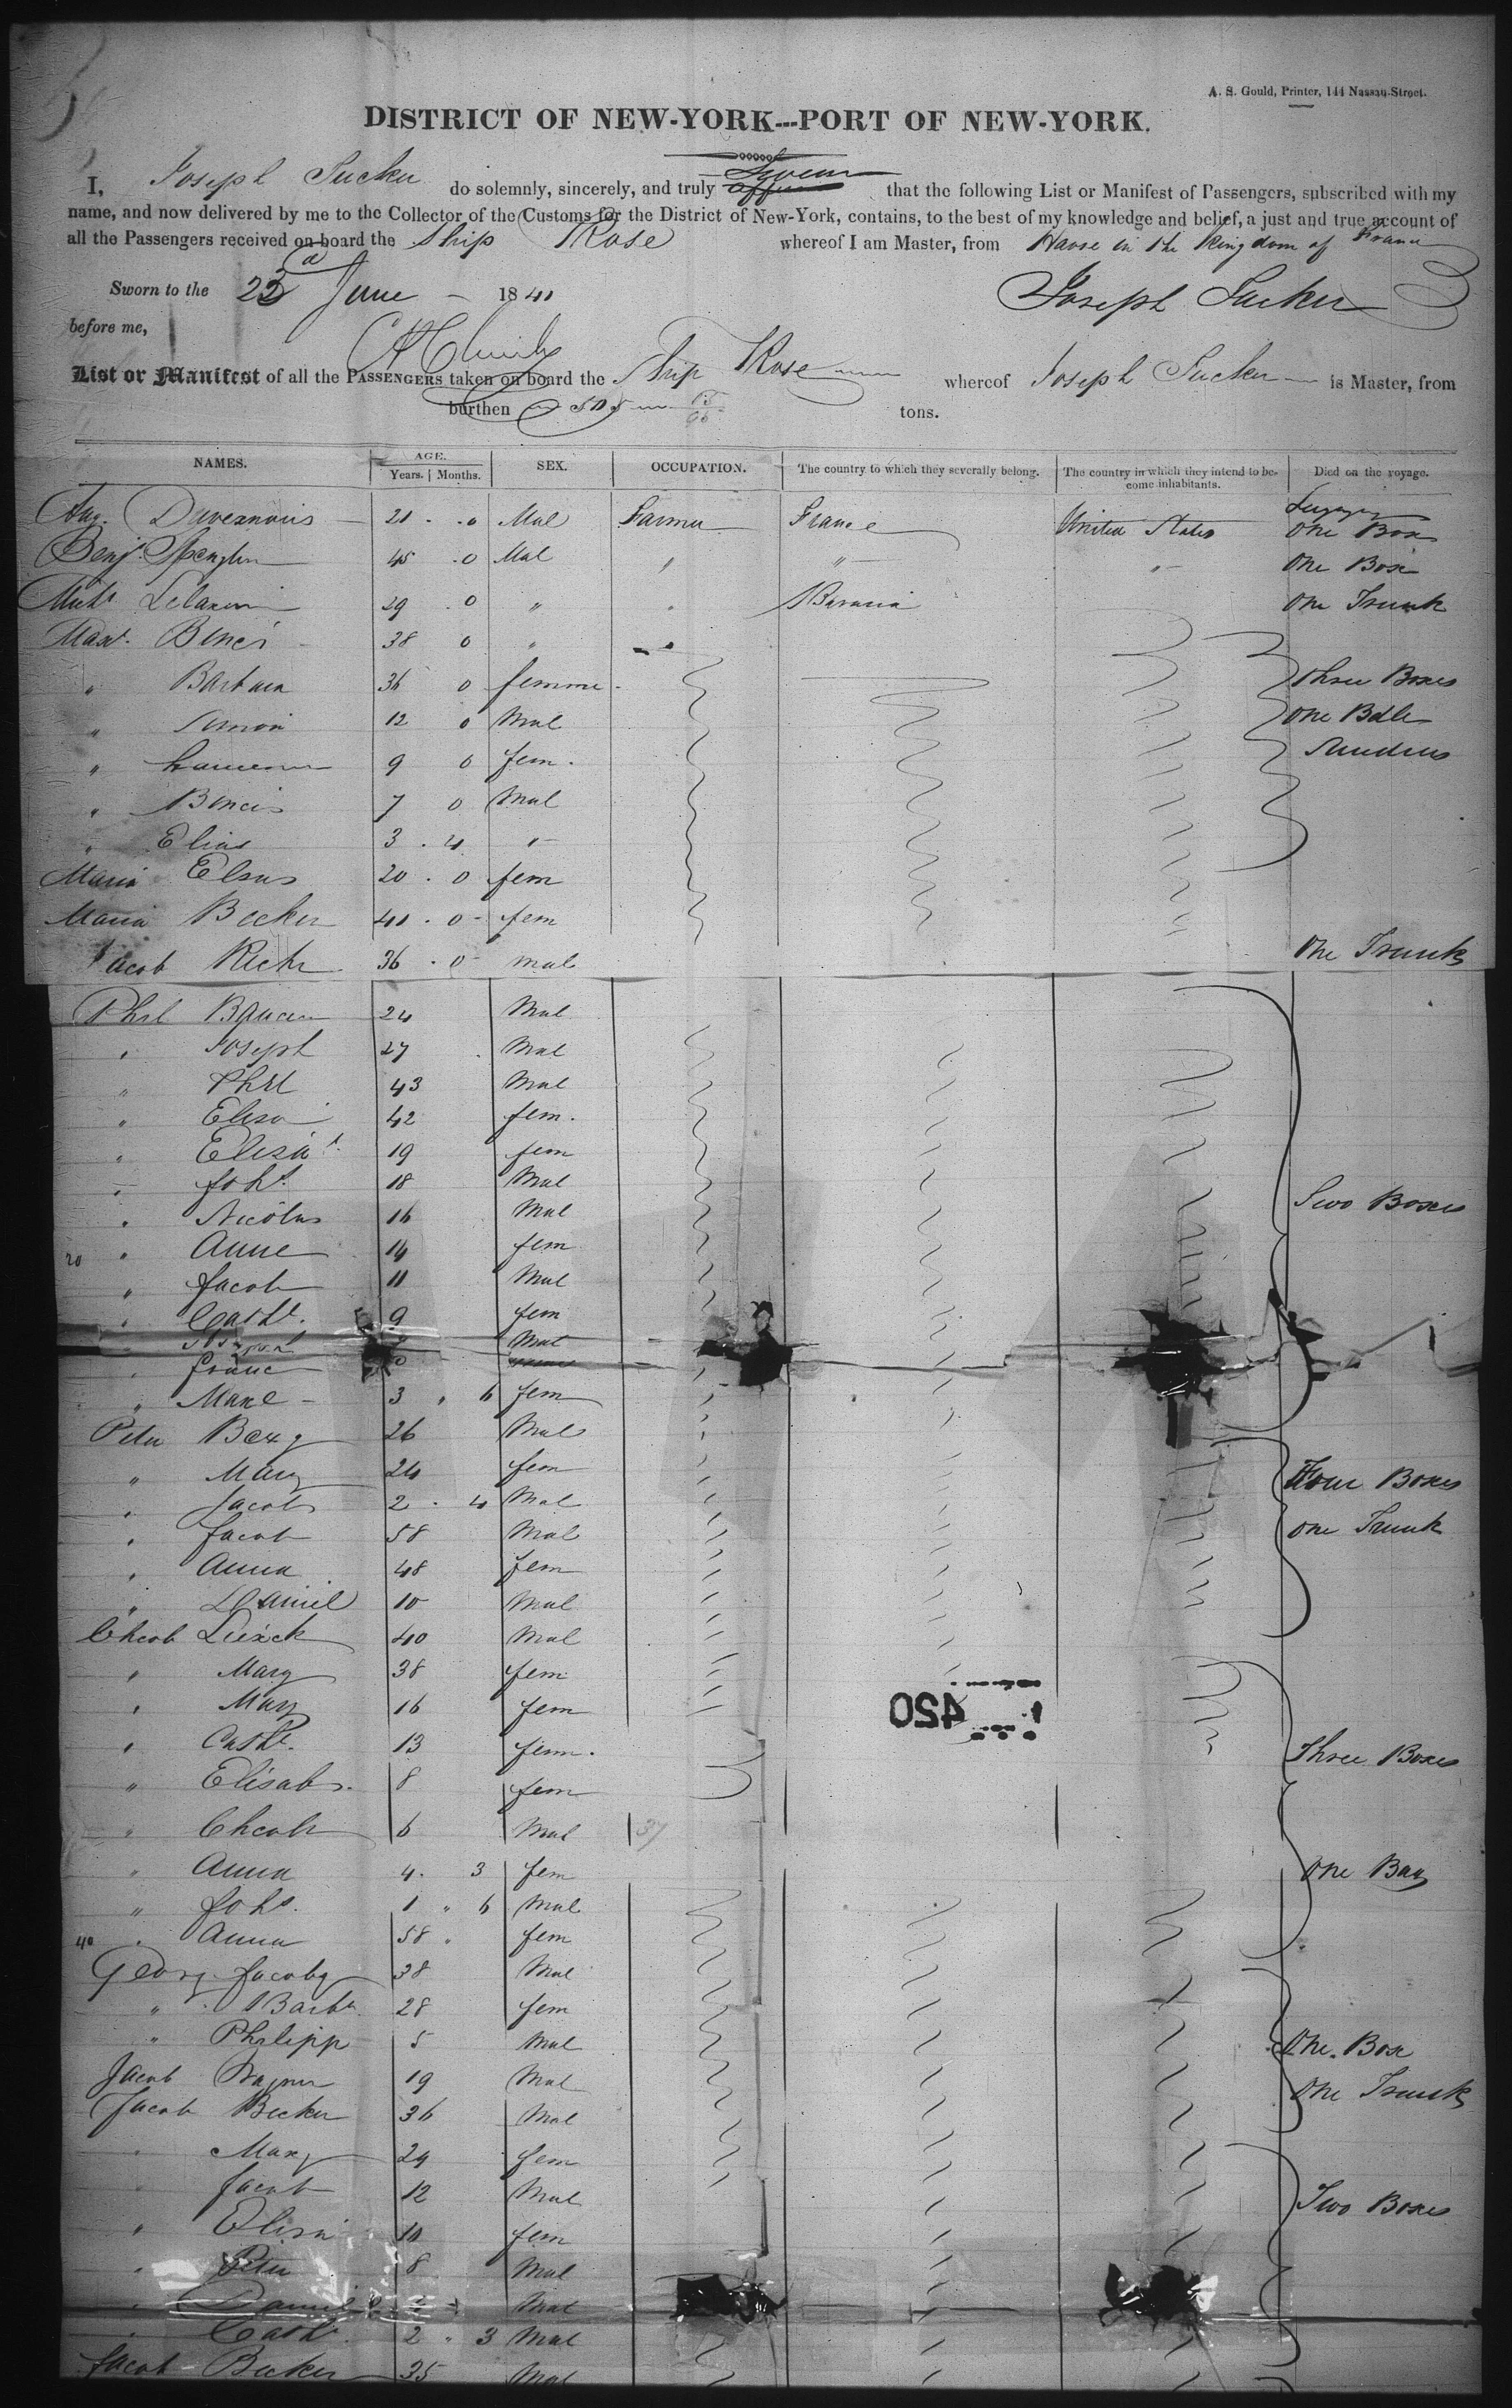 A. S. Gould, Printer, 144 Nassau-Street.
DISTRICT OF NEW-YORK---PORT OF NEW-YORK.
I, Joseph Tucker do solemnly, sincerely, and truly Swear that the following List or Manifest of Passengers, subscribed with my
name, and now delivered by me to the Collector of the Customs for the District of New-York, contains, to the best of my knowledge and belief, a just and true account of
all the Passengers received on board the Ship Rose whereof I am Master, from Havre in the Kingdom of France
Sworn to the 22d June 1841 Joseph Tucker
before me,
List or Manifest of all the PASSENGERS taken on board the Ship Rose whereof Joseph Tucker is Master, from
burthen 505 tons.
NAMES. AGE. Years. Months. SEX. OCCUPATION. The country to which they severally belong. The country in which they intend to become inhabitants. Died on the voyage.
Luggage
Aug. 21 0 Mal Farmer France United States One Box
Benj. Spengler 45 0 Mal " " " One Box
29 0 " " Bavaria One Trunk
38 0 "
" Barbara 36 0 femme Three Boxes
" Simon 12 0 Mal One Bdle
" 9 0 fem. Sundries
" 7 0 Mal
" Elias 3 4 "
Maria 20 0 fem
Maria Becker 41 0 fem
Jacob 36 0 mal One Trunk
Phil 24 Mal
" Joseph 27 Mal
" Phil 43 Mal
" Elisa 42 fem.
" 19 fem
" Joh. 18 Mal
" Nicolas 16 Mal Two Boxes
20 " Anne 14 fem
" Jacob 11 Mal
" Cath. 9 fem
" Joseph Mal
" Franc
" Marie 3 6 fem
Peter Berg 26 Mal
" Mary 24 fem Four Boxes
" Jacob 2 4 Mal
" Jacob 58 Mal one Trunk
" Anna 48 fem
" Daniel 10 Mal
40 Mal
" Mary 38 fem
" Mary 16 fem
420
" Cath. 13 fem. Three Boxes
" Elisab. 8 fem
" 6 Mal 37
" Anna 4 3 fem One Bag
" Joh. 1 6 Mal
40 " Anna 58 fem
Georg Jacoby 38 Mal
" Barb. 28 fem
" Philipp 5 Mal One Box
Jacob Wagner 19 Mal One Trunk
Jacob Becker 36 Mal
" Mary 29 fem
" Jacob 12 Mal Two Boxes
" Elisa 10 fem
" Peter 8 Mal
" Daniel Mal
" Cath. 2 3 Mal
Jacob Becker 35 Mal